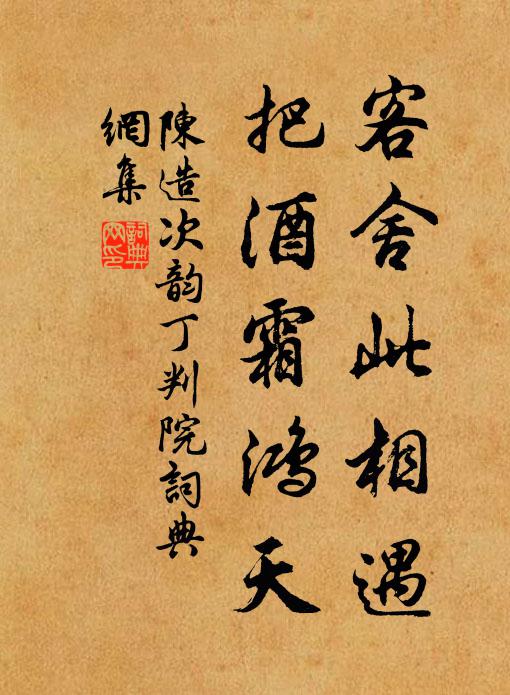 客舍此相遇
把酒霜鴻天
陳造次韵丁判院詞典
網集
詞典
网印